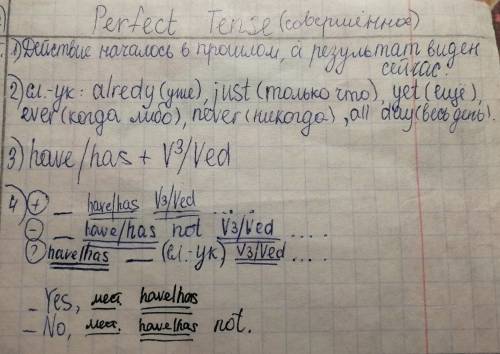 Perfect Tense (совершённое)
1) Действие началось в прошлом, а результат виден
сейчас.
2) сл.-ук: alredy (уже), just (только что), yet (ещё),
ever (когда либо), never (никогда), all day (весь день).
3) have/has + V³/Ved
4) + _ have/has V3/Ved ....
- _ have/has not V3/Ved ....
? have/has _ (сл.-ук) V3/Ved ....
_ Yes, мест have/has
_ No, мест. have/has not.